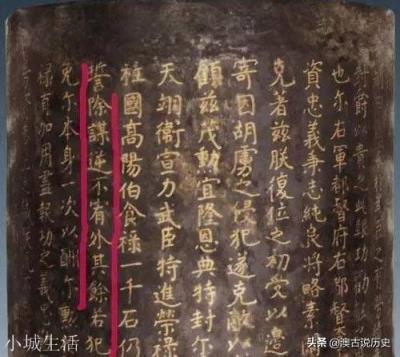 爵以貴之此報功勸
也尔右軍都督府右都督
資忠義秉志純良將略
克者茲朕復位之初受以邊
寄因胡虜之侵犯遂克敵以
顧茲茂勳宜隆恩典特封尔
天翊衛宣力武臣特進榮祿
柱國高陽伯食祿一千石仍
誓除謀逆不宥外其餘若犯
免尔本身一次以酬尔
報功之義
小城生活
头条 @澳古说历史